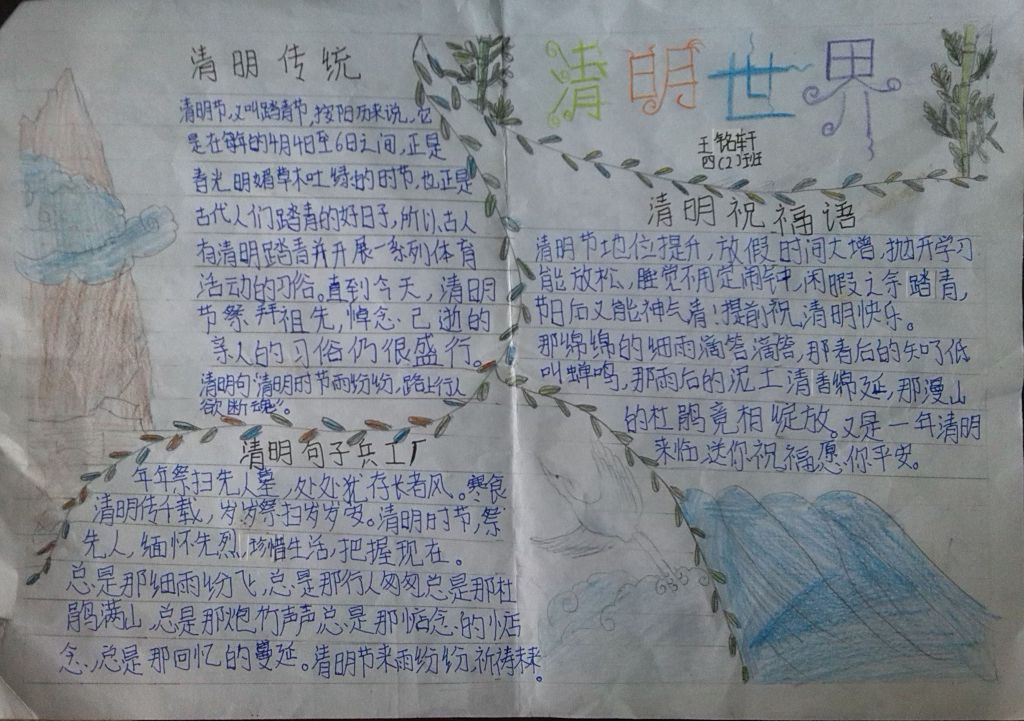 清明传统
清明节,又叫踏青节,按阳历来说,它
是在每年的4月4日至6日之间,正是
春光明媚草木吐绿的时节,也正是
古代人们踏青的好日子,所以古人
有清明踏青并开展一系列体育
活动的习俗。直到今天,清明
节祭拜祖先,悼念己逝的
亲人的习俗仍很盛行。
清明句:清明时节雨纷纷,路上行人
欲断魂。
清明句子兵工厂
年年祭扫先人墓,处处犹存长者风。寒食
清明传千载,岁岁祭扫岁岁安。清明时节,祭
先人,缅怀先烈,珍惜生活,把握现在。
总是那细雨纷飞,总是那行人匆匆总是那杜
鹃满山,总是那炮竹声声总是那惦念的惦
念,总是那回忆的蔓延。清明节来雨纷纷,祈祷未来。
清明世界
王铭轩
四(2)班
清明祝福语
清明节地位提升,放假时间大增,抛开学习
能放松,睡觉不用定闹钟,闲暇之余踏青,
节日后又能神气清,提前祝,清明快乐。
那绵绵的细雨滴答滴答,那春后的知了低
叫蝉鸣,那雨后的泥土清香绵延,那漫山
的杜鹃竟相绽放。又是一年清明
来临送你祝福愿你平安。